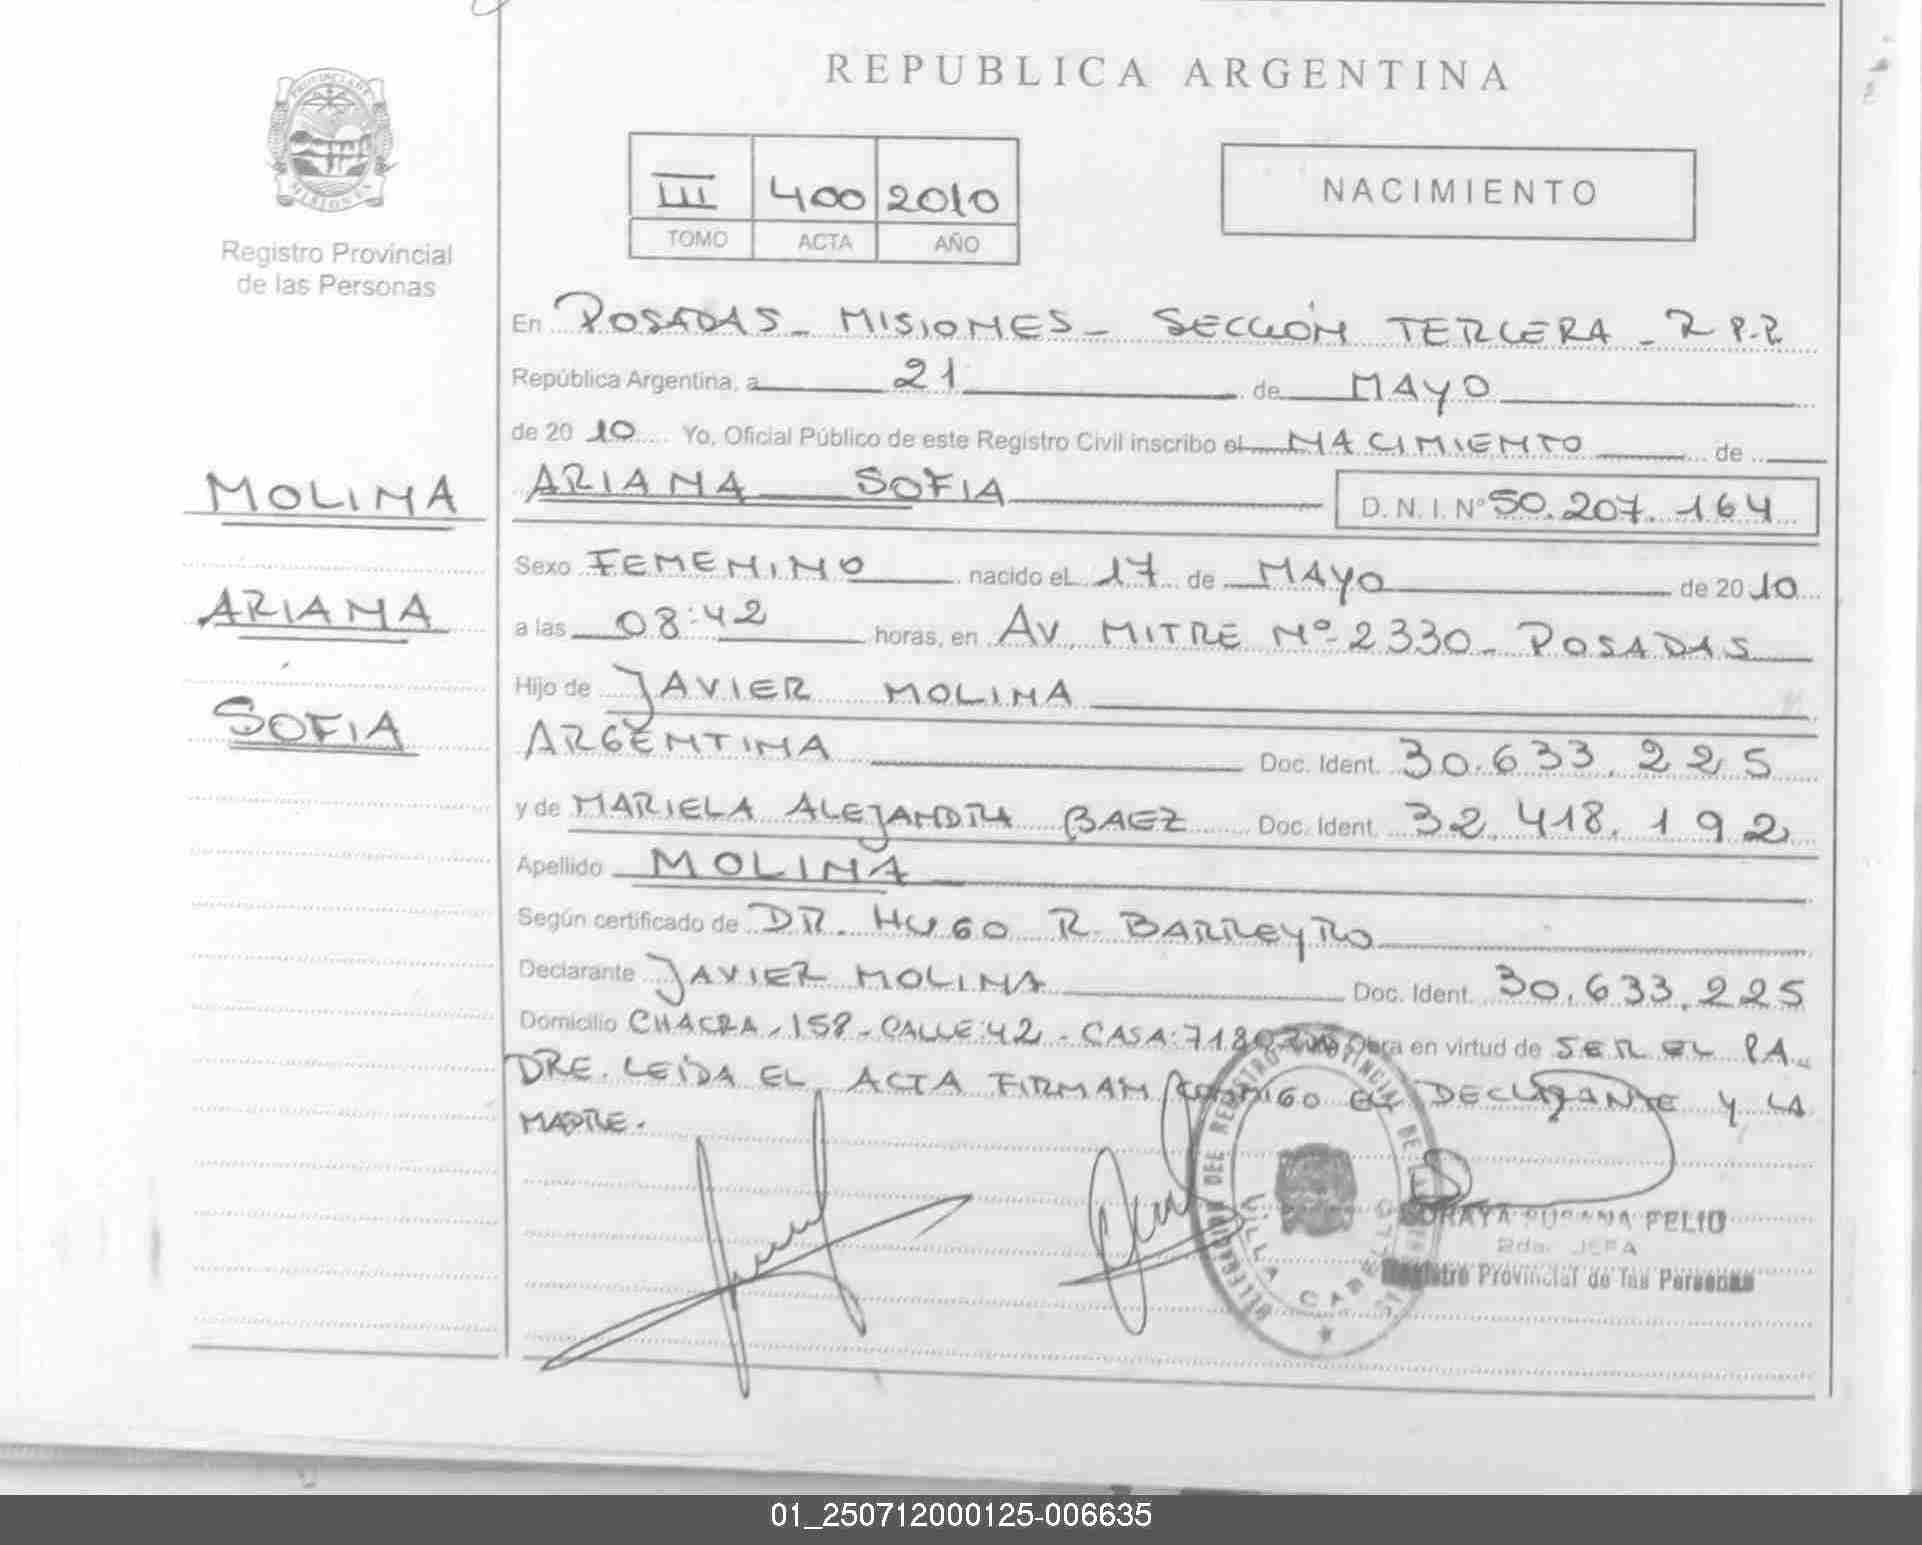 REPUBLICA ARGENTINA
PROVINCIA DE MISIONES
Registro Provincial
de las Personas
III 400 2010
TOMO ACTA AÑO
NACIMIENTO
En POSADAS - MISIONES - SECCIÓN TERCERA - R.P.P.
República Argentina, a 21 de MAYO
de 20 10 Yo, Oficial Público de este Registro Civil inscribo el NACIMIENTO de
ARIANA SOFIA D.N.I. Nº 50.207.164
MOLINA
ARIANA
SOFIA
Sexo FEMENINO nacido el 17 de MAYO de 20 10
a las 08:42 horas, en AV. MITRE Nº 2330 - POSADAS
Hijo de JAVIER MOLINA
ARGENTINA Doc. Ident. 30.633.225
y de MARIELA ALEJANDRA BAEZ Doc. Ident. 32.418.192
Apellido MOLINA
Según certificado de DR. HUGO R. BARREYRO
Declarante JAVIER MOLINA Doc. Ident. 30.633.225
Domicilio CHACRA - 158 - CALLE: 42 - CASA: Obra en virtud de SER EL PA
DRE. LEIDA EL ACTA FIRMAN CONMIGO EL DECLARANTE Y LA
MADRE.
DELEGACION DEL REGISTRO PROVINCIAL DE LAS PERSONAS
VILLA CABELLO
SORAYA SUSANA FELIU
2da. JEFA
Registro Provincial de las Personas
01_250712000125-006635